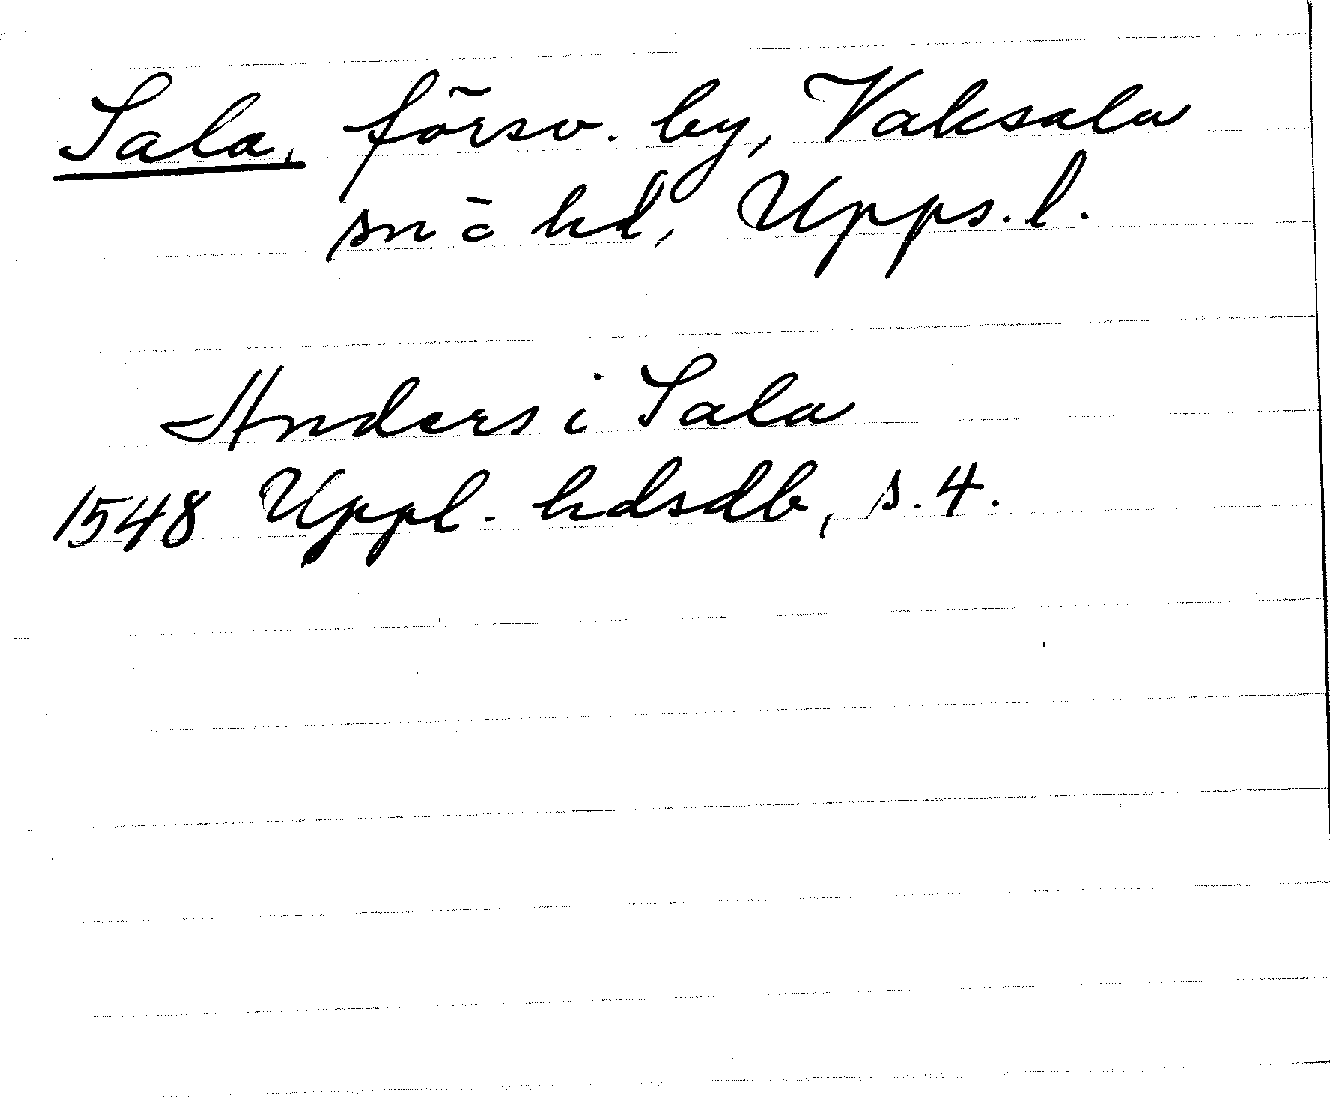 Sala, försv. by, Vaksala
sn o hd, Upps. l.
Anders i Sala
1548 Uppl. hdsdb, s. 4.